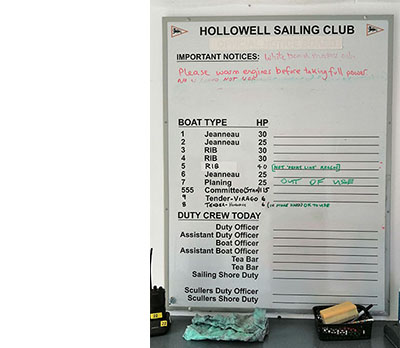 HOLLOWELL SAILING CLUB
IMPORTANT NOTICES: White board
Please warm engines before taking full power.
NOT USE
BOAT TYPE HP
1 Jeanneau 30
2 Jeanneau 25
3 RIB 30
4 RIB 30
5 RIB 40
6 Jeanneau 25
7 Planing 25 OUT OF USE
555 Committee 15
9 Tender-VIRAGO 6
8 TENDER- 6
DUTY CREW TODAY
Duty Officer
Assistant Duty Officer
Boat Officer
Assistant Boat Officer
Tea Bar
Tea Bar
Sailing Shore Duty
Scullers Duty Officer
Scullers Shore Duty